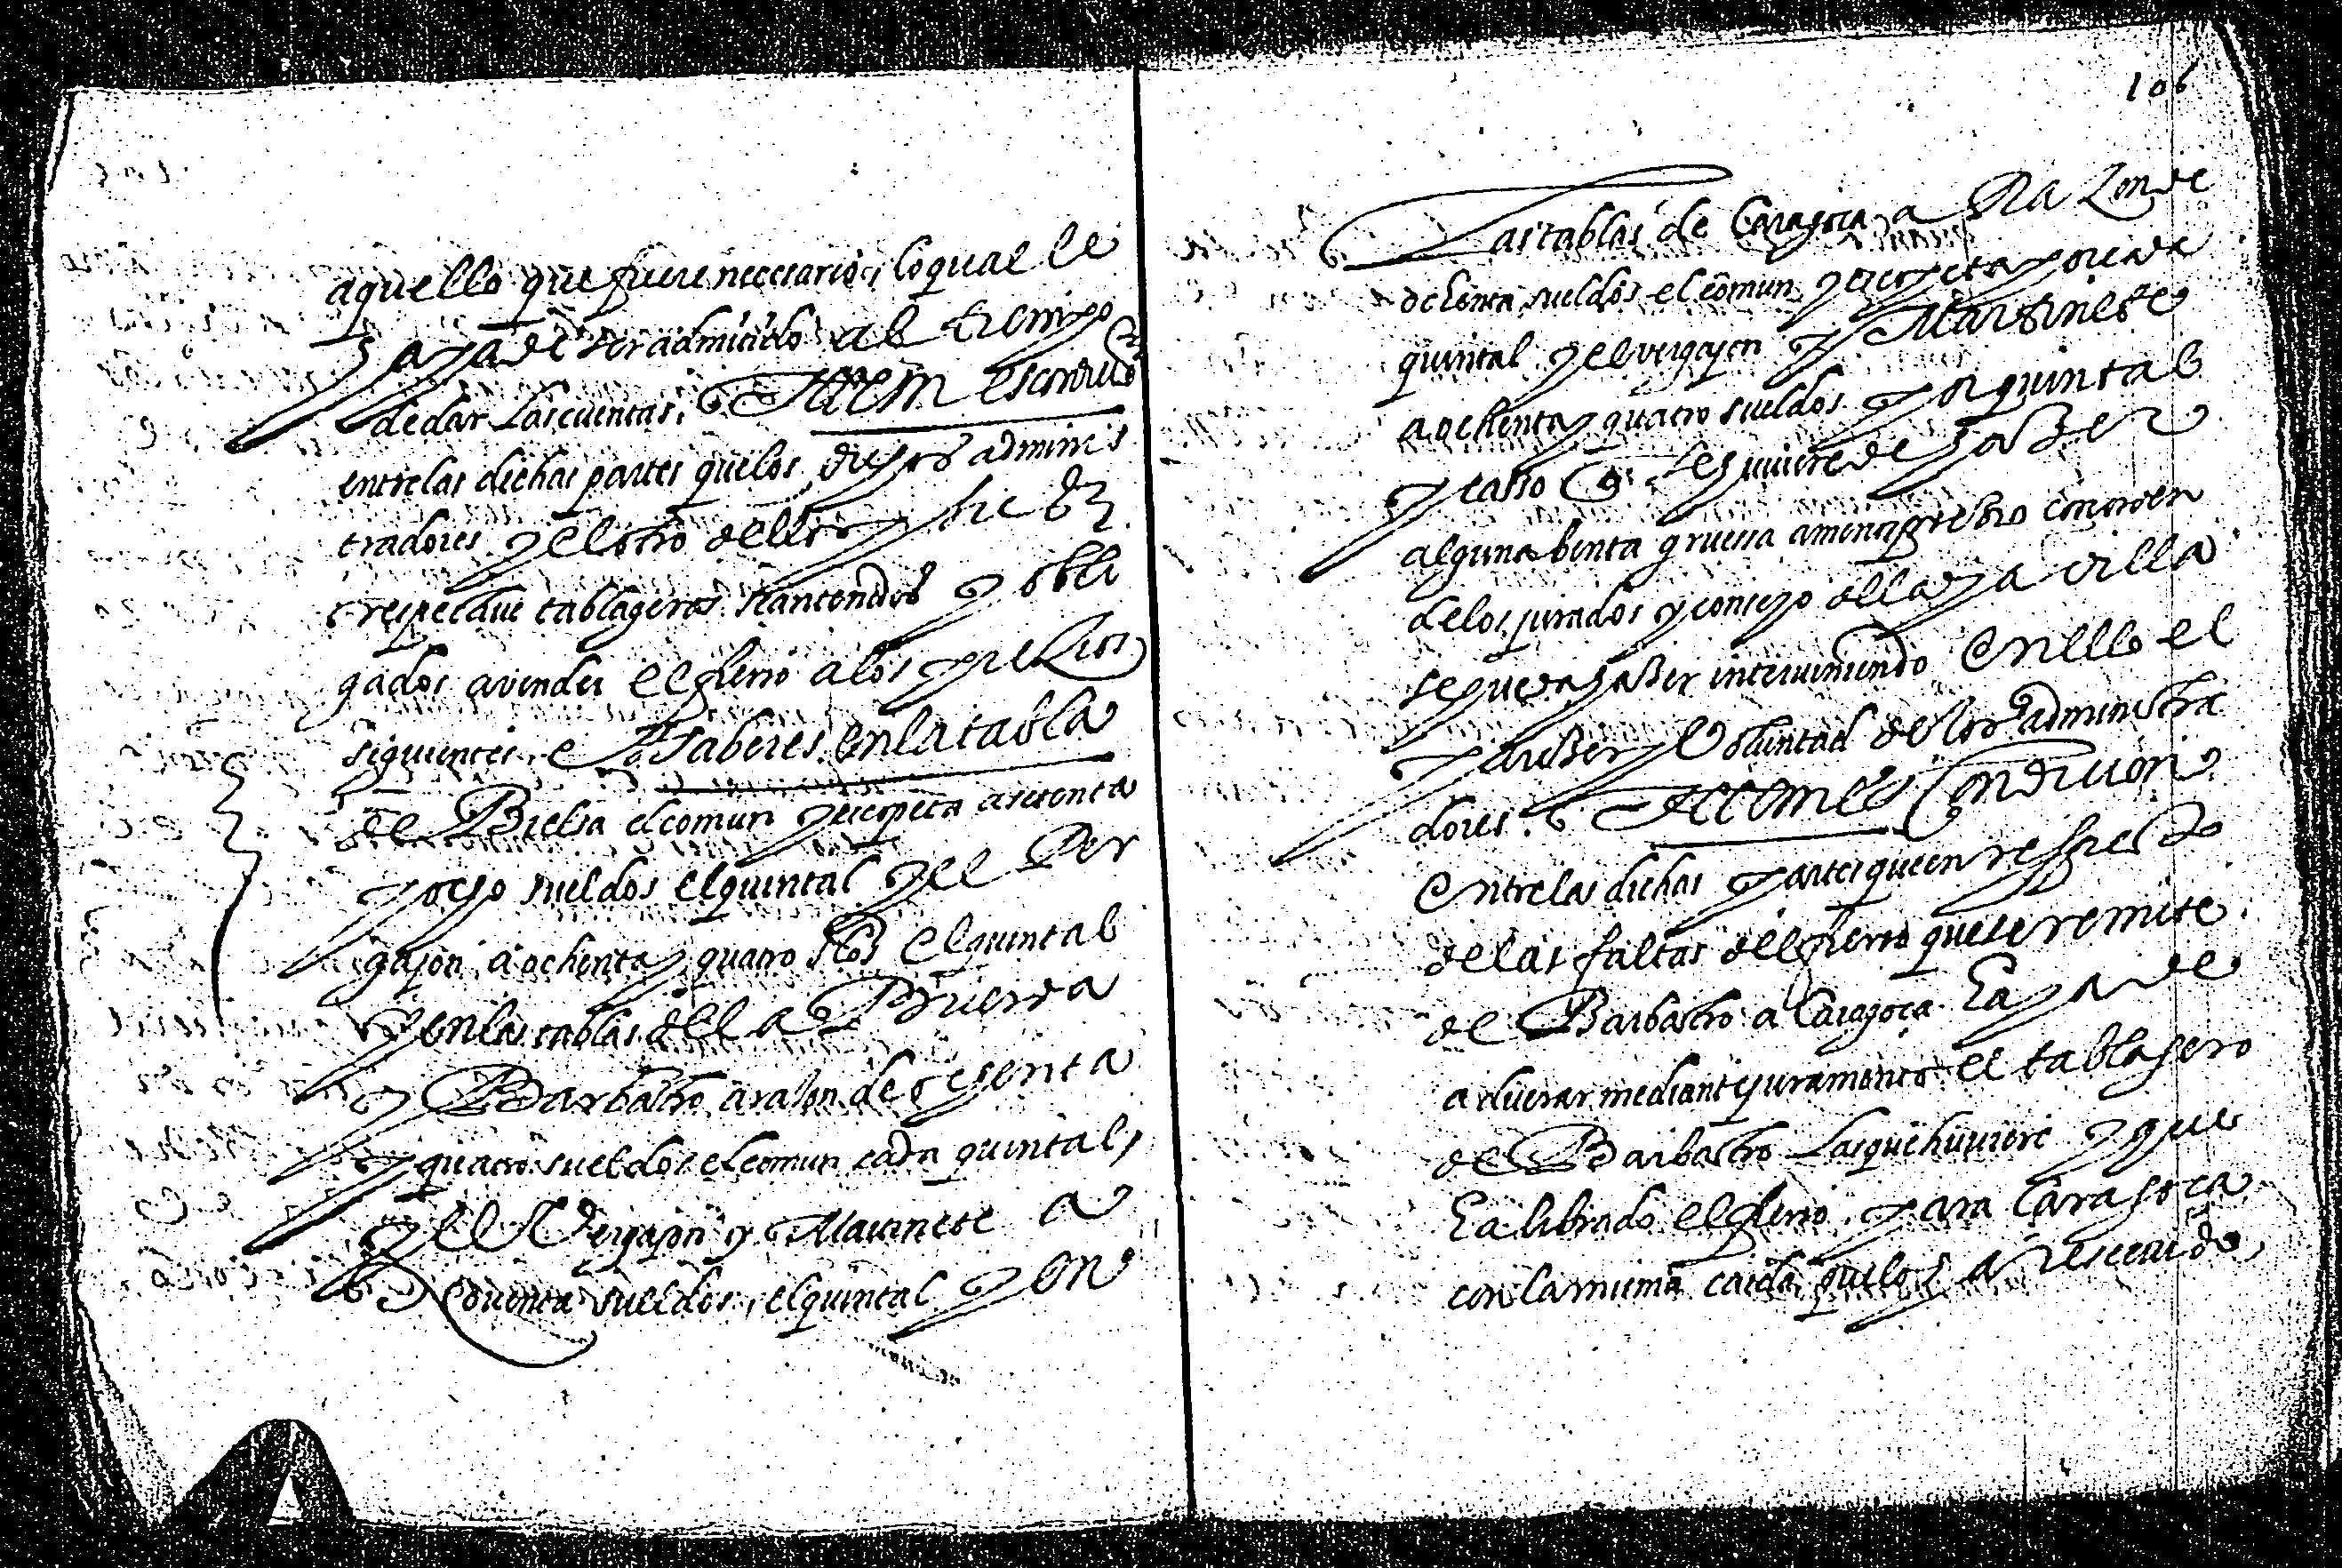 aquello que fuere neccesario, lo qual le
aya de ser admitido al tiempo
de dar las cuentas. Item es condicion
entre las dichas partes que los dichos adminis
tradores y el otro dellos
respective tablageros sean tenidos y obli
gados a vender el fierro a los precios
siguientes. A saber es en la tabla
de Bielsa el comun y a setenta
y ocho sueldos el quintal y el Ver
gajon a ochenta y quatro s.os el quintal
y en las tablas de la Buerda
y Barbastro a razon de ochenta
y quatro sueldos el comun cada quintal,
y el Vergajon y Martinete a
sueldos, el quintal y en
106
Las tablas de Caragoça a Razon de
ochenta sueldos el comun por cada
quintal y el vergajon y Martinete
a ochenta y quatro sueldos por quintal
y casso q. se huviere de hazer
alguna benta gruessa a menos precio con orden
de los jurados y consejo de la villa
se pueda hazer interviniendo en ello el
parezer y voluntad de los administra
dores. Item es Condicion
entre las dichas partes que en respecto
de las faltas del fierro que se remite
de Barbastro a Caragoça haya de
adverar mediante juramento el tablagero
de Barbastro las que huviere y que
ha librado el fierro para Caragoça
con la misma caida que lo ha rescevido,